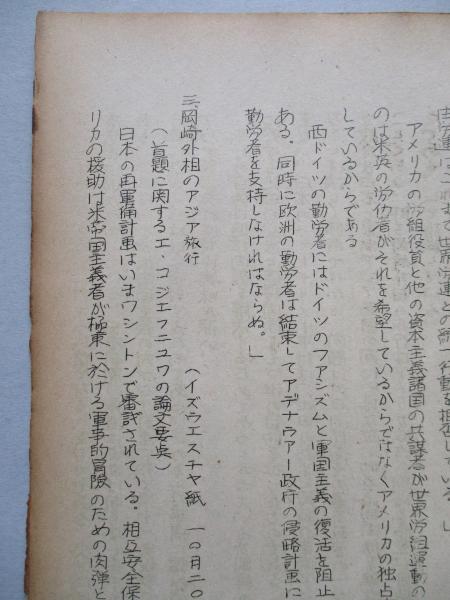 由労連はこれまで世界労連との統一行動を拒否している。」
アメリカの労組役員と他の資本主義諸国の共謀者が世界労組運動の
のは米英の労仂者がそれを希望しているからではなくアメリカの独占
しているからである
西ドイツの勤労者にはドイツのファシズムと軍国主義の復活を阻止
ある。同時に欧洲の勤労者は結束してアデナウアー政府の侵略計画に
勤労者を支持しなければならぬ。」
三、岡崎外相のアジア旅行
(イズウエスチヤ紙 一〇月二〇
(首題に関するエ、コジエフニユワの論文要点)
日本の再軍備計画はいまワシントンで審議されている。相互安全保
リカの援助は米帝国主義者が極東に於ける軍事的冒険のための肉弾と